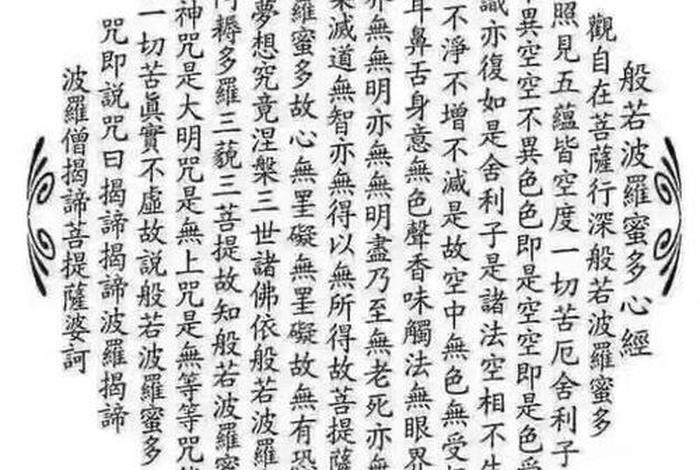 般若波羅蜜多心經
觀自在菩薩行深般若波羅蜜多
照見五蘊皆空度一切苦厄舍利子
不異空空不異色色即是空空即是色受
識亦復如是舍利子是諸法空相不生
不淨不增不減是故空中無色無受
耳鼻舌身意無色聲香味觸法無眼界
無無明亦無無明盡乃至無老死亦無
集滅道無智亦無得以無所得故菩提薩
羅蜜多故心無罣礙無罣礙故無有恐
夢想究竟涅槃三世諸佛依般若波羅
耨多羅三藐三菩提故知般若波羅蜜
神咒是大明咒是無上咒是無等等咒
一切苦眞實不虛故説般若波羅蜜多
咒即説咒曰揭諦揭諦波羅揭諦
波羅僧揭諦菩提薩婆訶